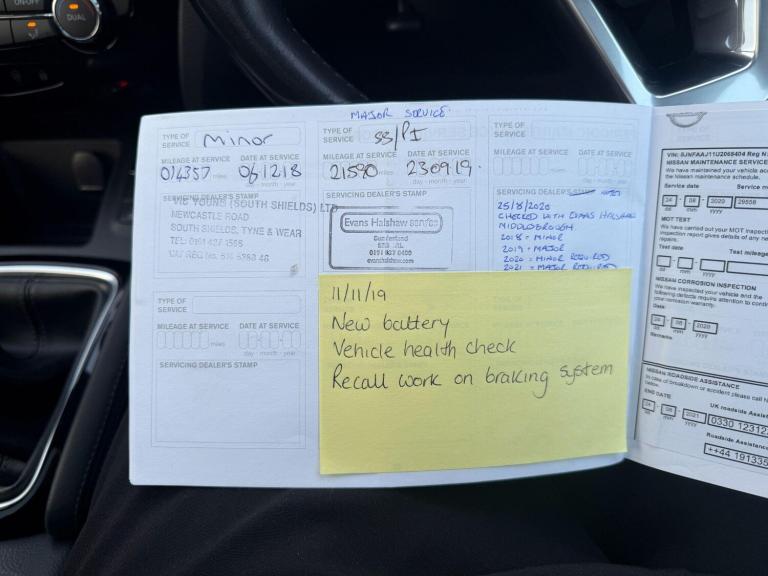 DUAL
MAJOR SERVICE
TYPE OF SERVICE Minor
MILEAGE AT SERVICE DATE AT SERVICE
014357 miles 061218
day - month - year
SERVICING DEALER'S STAMP
VIC YOUNG (SOUTH SHIELDS) LTD
NEWCASTLE ROAD
SOUTH SHIELDS, TYNE & WEAR
TYPE OF SERVICE SS/PI
MILEAGE AT SERVICE DATE AT SERVICE
21590 miles 230919.
day - month - year
SERVICING DEALER'S STAMP
Evans Halshaw
Sunderland
evanshalshaw.com
TYPE OF SERVICE
MILEAGE AT SERVICE DATE AT SERVICE
miles
day - month - year
SERVICING DEALER'S STAMP
25/8/2020
CHECKED WITH EVANS HALSHAW
MIDDLESBROUGH
2018 = MINOR
2019 = MAJOR
2020 = MINOR REQUIRED
2021 = MAJOR REQUIRED
TYPE OF SERVICE
MILEAGE AT SERVICE DATE AT SERVICE
miles
day - month - year
SERVICING DEALER'S STAMP
11/11/19
New battery
Vehicle health check
Recall work on braking system
VIN: SJNFAAJ11U2068404 Reg N
NISSAN MAINTENANCE SERVICE
We have maintained your vehicle
the Nissan maintenance schedule.
Service date Service
24 08 2020 29558
mm YYYY
MOT TEST
We have carried out your MOT
inspection report gives details of any
repairs.
Test date Test mileage
dd mm YYYY
NISSAN CORROSION INSPECTION
We have inspected your vehicle and the
following defects require attention to
your corrosion warranty.
Date:
24 08 2020
mm YYYY
NISSAN ROADSIDE ASSISTANCE
In case of breakdown or accident please call
below.
END DATE UK roadside
24 08 2021 0330 12312
mm YYYY
Roadside
++44 191335